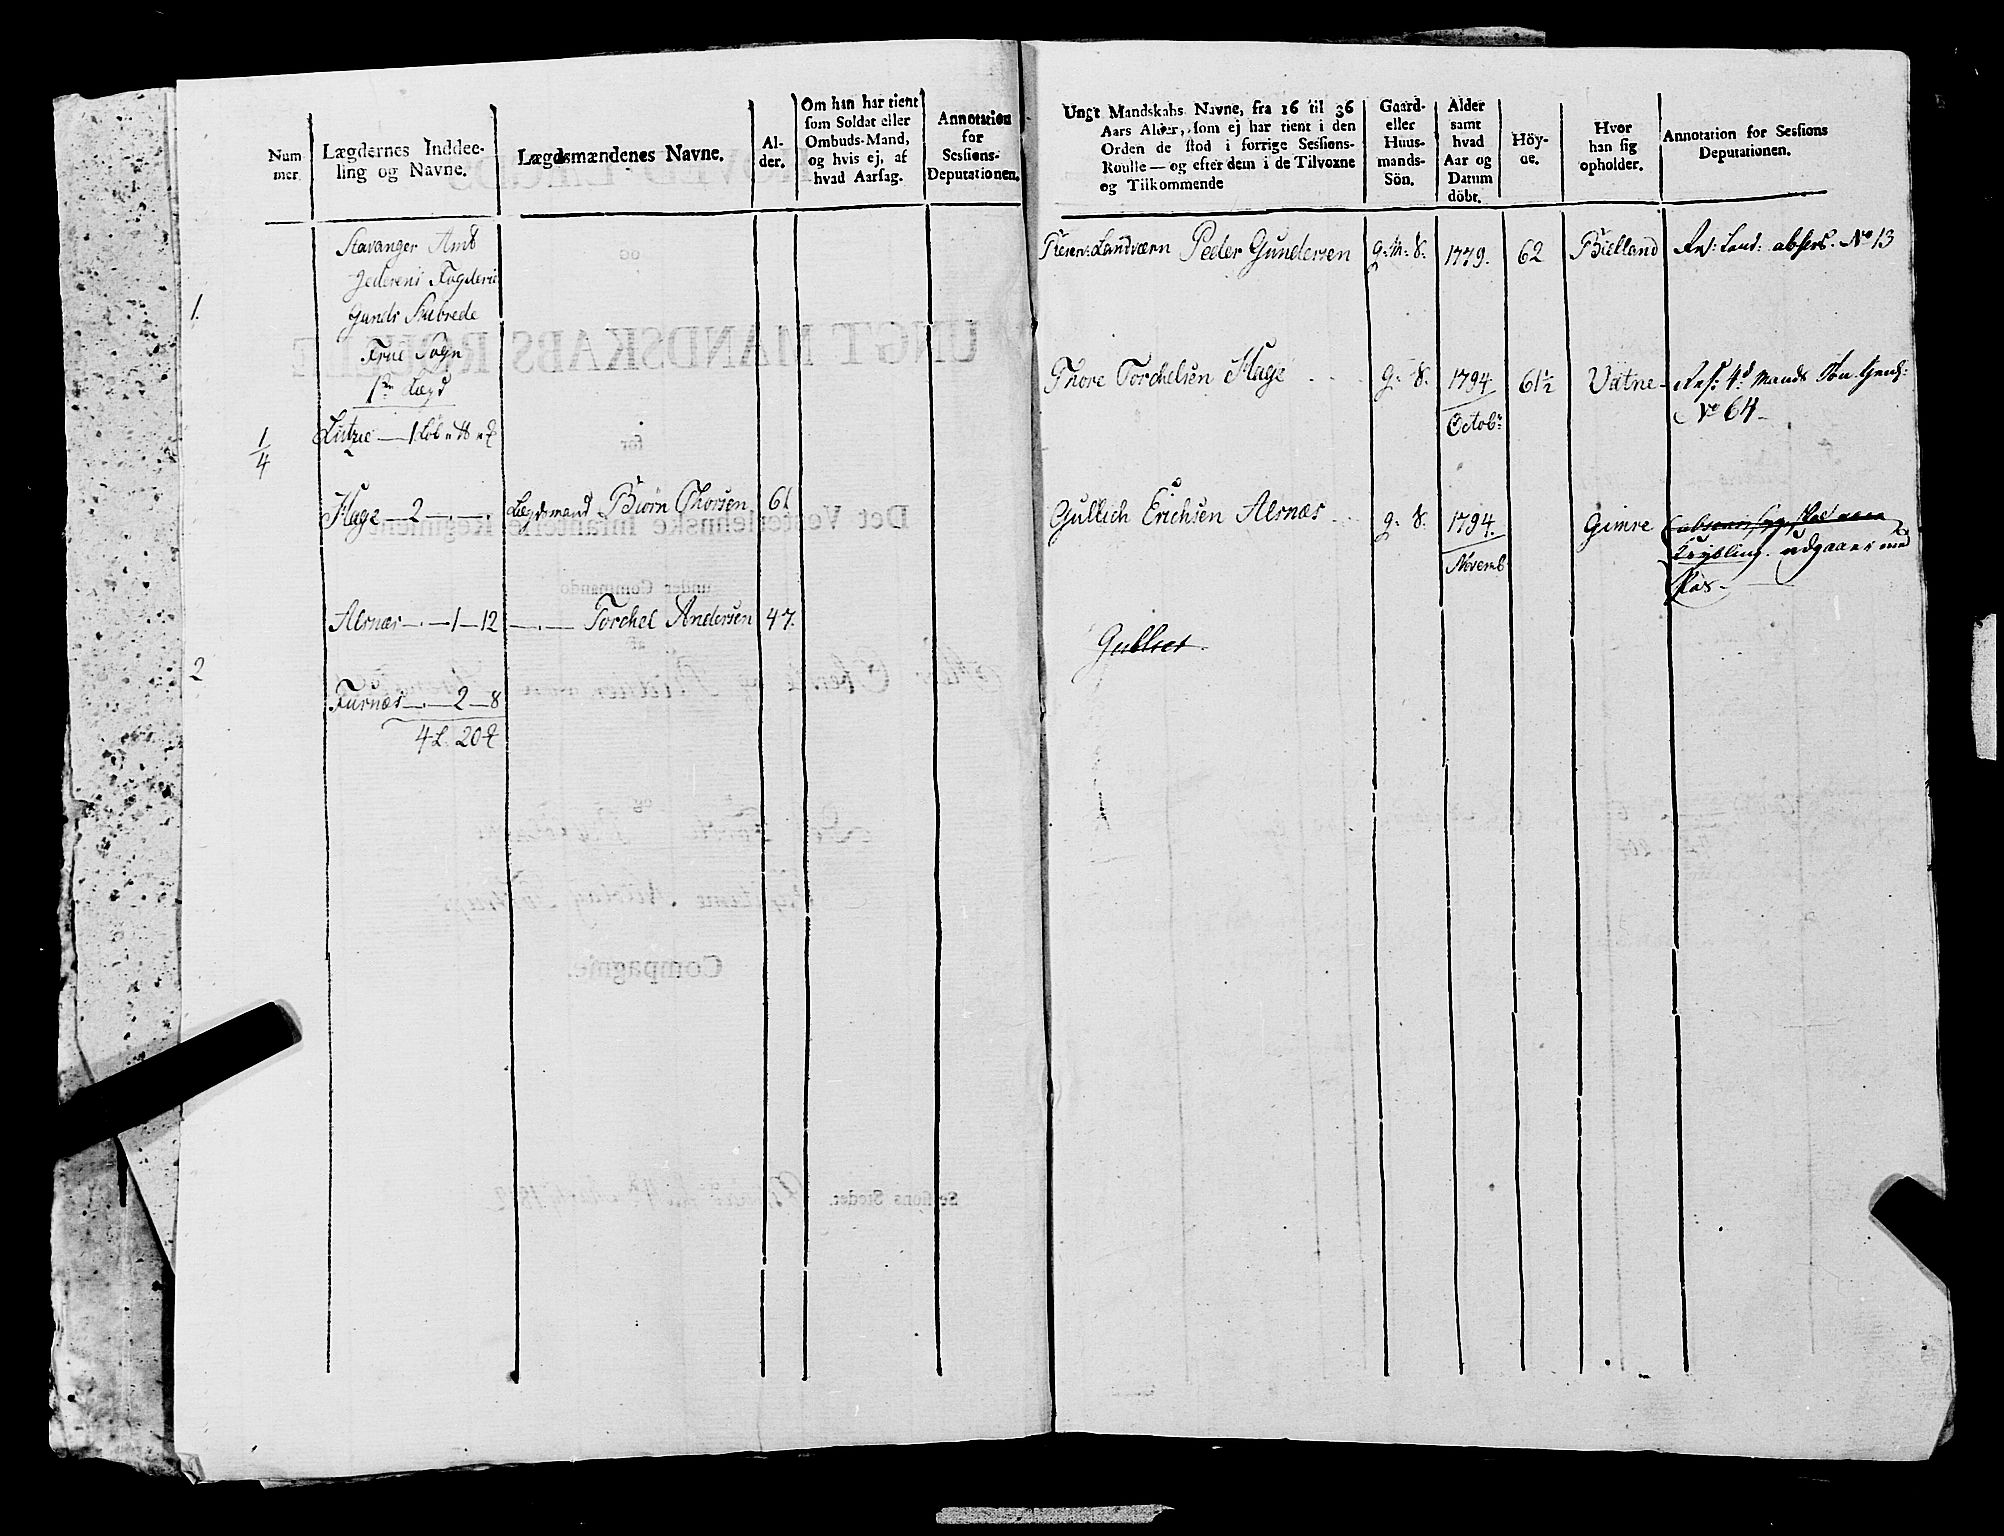 Num
mer.
Lægdernes Inddee-
ling og Navne.
Lægdsmændenes Navne.
Al-
der.
Om han har tient
som Soldat eller
Ombuds-Mand,
og hvis ej, af
hvad Aarsag.
Annotation
for
Sessions-
Deputationen.
Stavanger Amt
Jederens Fogderie
1.
Gands Skibrede
Frue Sogn
1te Lægd
1/4
Hage — 2 — . — .
Lægdsmand Biørn Thorsen
61
Alsnæs — . — 1 — 12
— . — Torchel Andersen
47.
2
Fursnæs — . — 2 — 8
Ungt Mandskabs Navne, fra 16 til 36
Aars Alder, som ej har tient i den
Orden de stod i forrige Sessions-
Roulle — og efter dem i de Tilvoxne
og Tilkommende
Gaard-
eller
Huus-
mands-
Sön.
Alder
samt
hvad
Aar og
Datum
döbt.
Höy-
de.
Hvor
han sig
opholder.
Annotation for Sessions
Deputationen.
Landværn Peder Gundersen
g: m: S.
1779.
62
Bielland
No 13
Thore Torchelsen Hage
g: S.
1794.
Octobr
61½
Vatne
No 64
Gullich Erichsen Alsnæs
g: S.
1794.
Novemb
Gimre
Krybling. udgaaer med
Pas